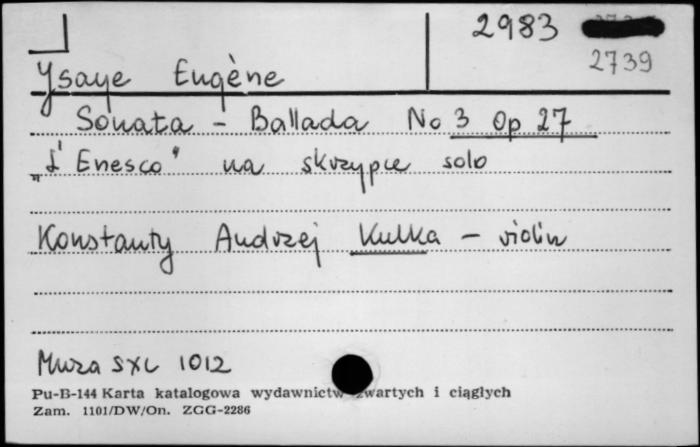 2983
2739
Ysaye Eugène
Sonata - Ballada No 3 Op 27
„L'Enesco" na skrzypce solo
Konstanty Andrzej Kulka - violin
Muza SXL 1012
Pu-B-144 Karta katalogowa wydawnictw zwartych i ciągłych
Zam. 1101/DW/On. ZGG-2286